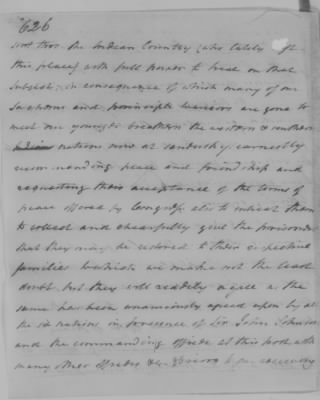 626
the Indian Country, who lately left
this place, with full power to treat on that
subject, in consequence of which many of our
Sachems and principle Warriors are gone to
meet our younger brethren the western & southern
nations now at Sandusky: earnestly
recommending peace and friendship and
requesting their acceptance of the terms of
peace offered by Congress also to intreat them
to collect and chearfully give the prisoners
that they may be restored to their respective
families which we make not the least
doubt but they will readily agree as the
same has been unanimously agreed upon by all
the six nations in presence of Sir John Johnson
and the commanding officer at this post with
many other officers